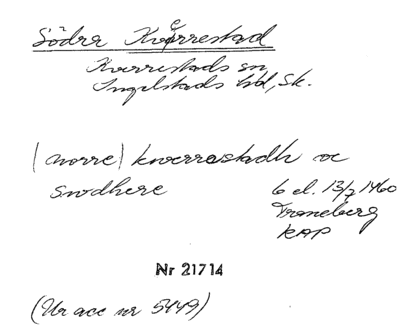 Södra Kvärrestad
Kverrestads sn,
Ingelstads hd, Sk.
(norre) kwerrestadh oc
swdhere
6 el. 13/7 1460
Traneberg
RAP
Nr 21714
(Ur acc nr 5449)